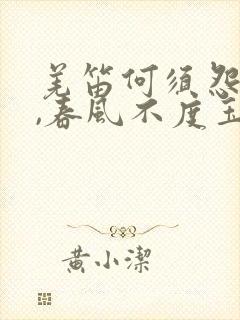 羌笛何须怨
,春风不度玉
黄小洁